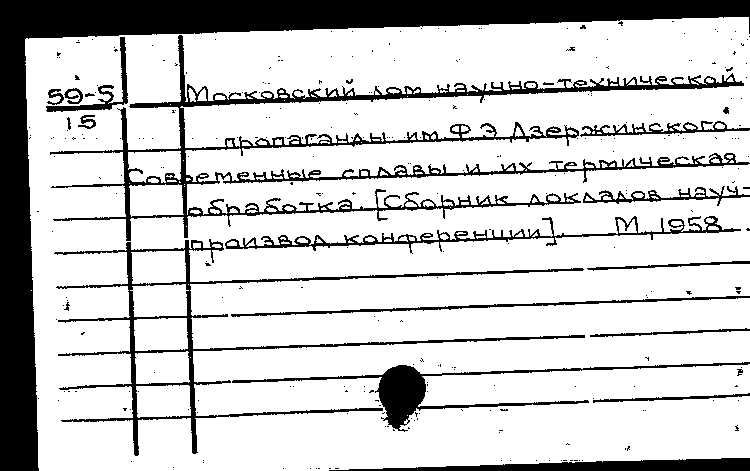 59-5 Московский дом научно-технической
15
пропаганды им Ф Э Дзержинского.
Современные сплавы и их термическая
обработка. [Сборник докладов науч-
произвол конференции]. М., 1958.